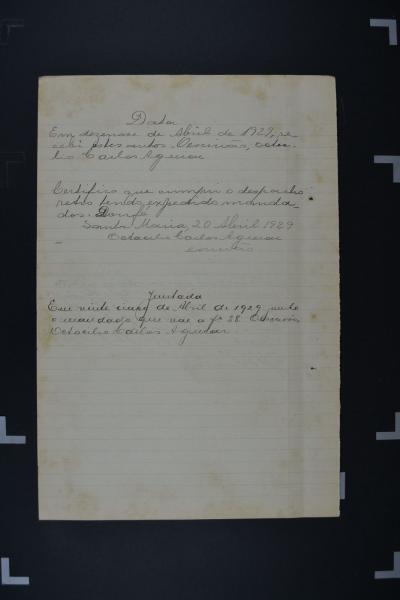 Data
Em dezenove de Abril de 1929, re
cebi estes autos. O escrivão, Octac
lio Carlos Aguiar
Certifico que cumpri o despacho
retro tendo expedido manda
dos. Dou fé
Santa Maria, 20 Abril 1929
Octacilio Carlos Aguiar
escrivão
Juntada
Em vinte cinco de Abril de 1929, junto
o mandado que vae a fs 28. O escrivão
Octacilio Carlos Aguiar